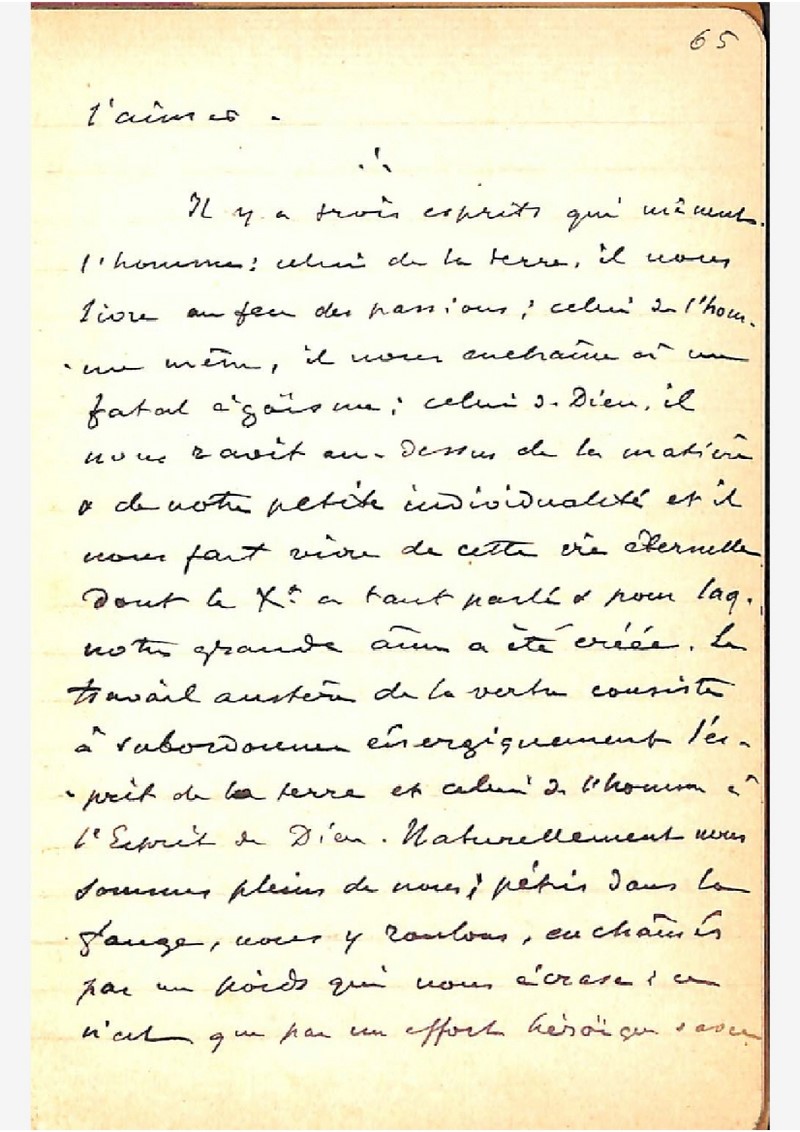 65
l'aimer.
∴
Il y a trois esprits qui mènent
l'homme : celui de la terre, il nous
livre au feu des passions ; celui de l'hom-
-me même, il nous enchaîne à un
fatal égoïsme ; celui de Dieu, il
nous ravit au-dessus de la matière
& de notre petite individualité et il
nous fait vivre de cette vie éternelle
dont le Xt a tant parlé & pour laq.
notre grande âme a été créée. Le
travail austère de la vertu consiste
à subordonner énergiquement l'es-
-prit de la terre et celui de l'homme à
l'Esprit de Dieu. Naturellement nous
sommes pleins de nous ; pétris dans la
fange, nous y roulons, enchaînés
par un poids qui nous écrase : ce
n'est que par un effort héroïque